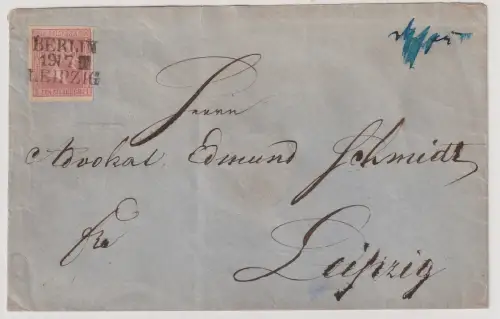 BERLIN
19 7
LEIPZIG
Herrn
Advokat Edmund Schmidt
fr
Leipzig